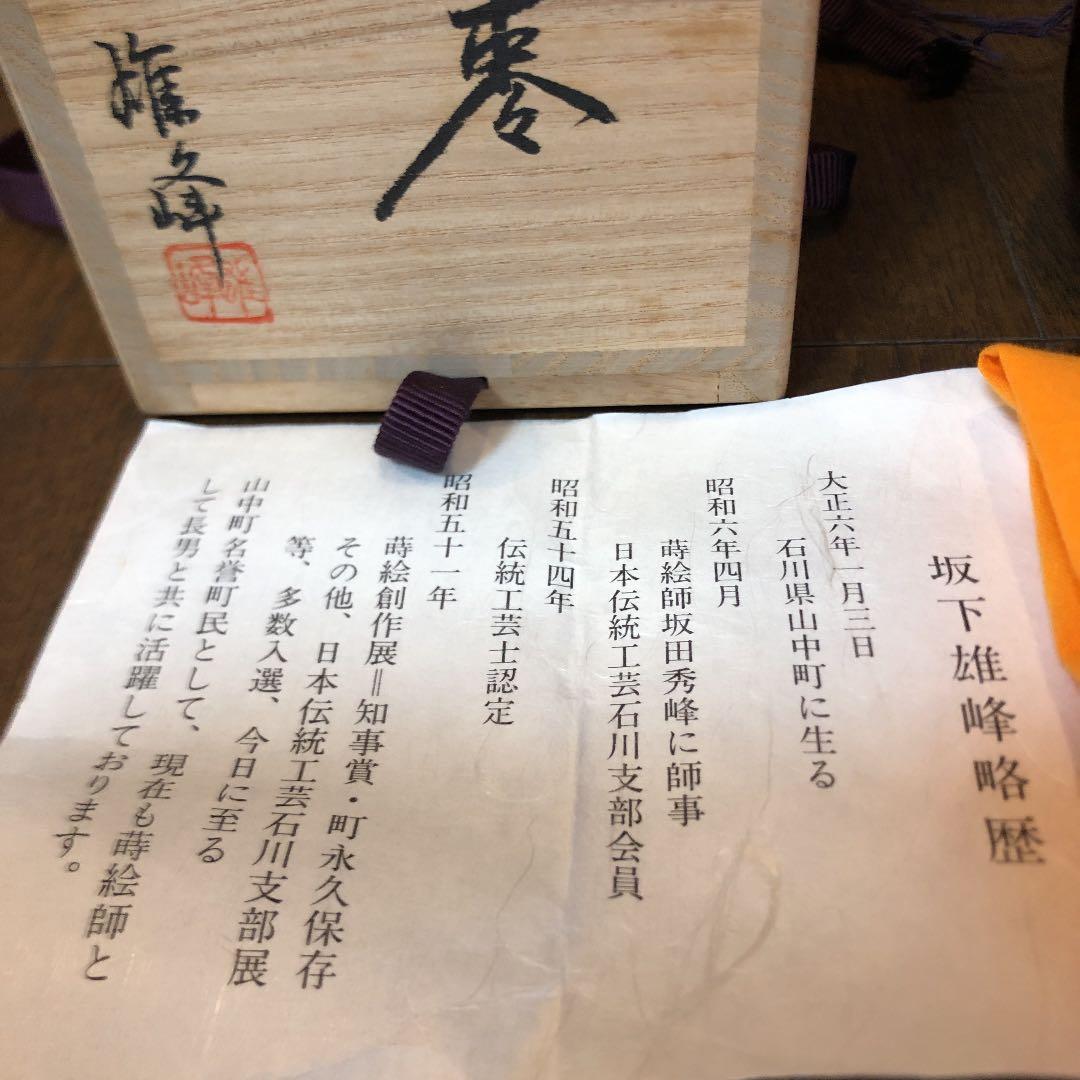 棗
雄峰
雄峰
坂下雄峰略歴
大正六年一月三日
石川県山中町に生る
昭和六年四月
蒔絵師坂田秀峰に師事
日本伝統工芸石川支部会員
昭和五十四年
伝統工芸士認定
昭和五十一年
蒔絵創作展＝知事賞・町永久保存
その他、日本伝統工芸石川支部展
等、多数入選、今日に至る
山中町名誉町民として、現在も蒔絵師と
して長男と共に活躍しております。